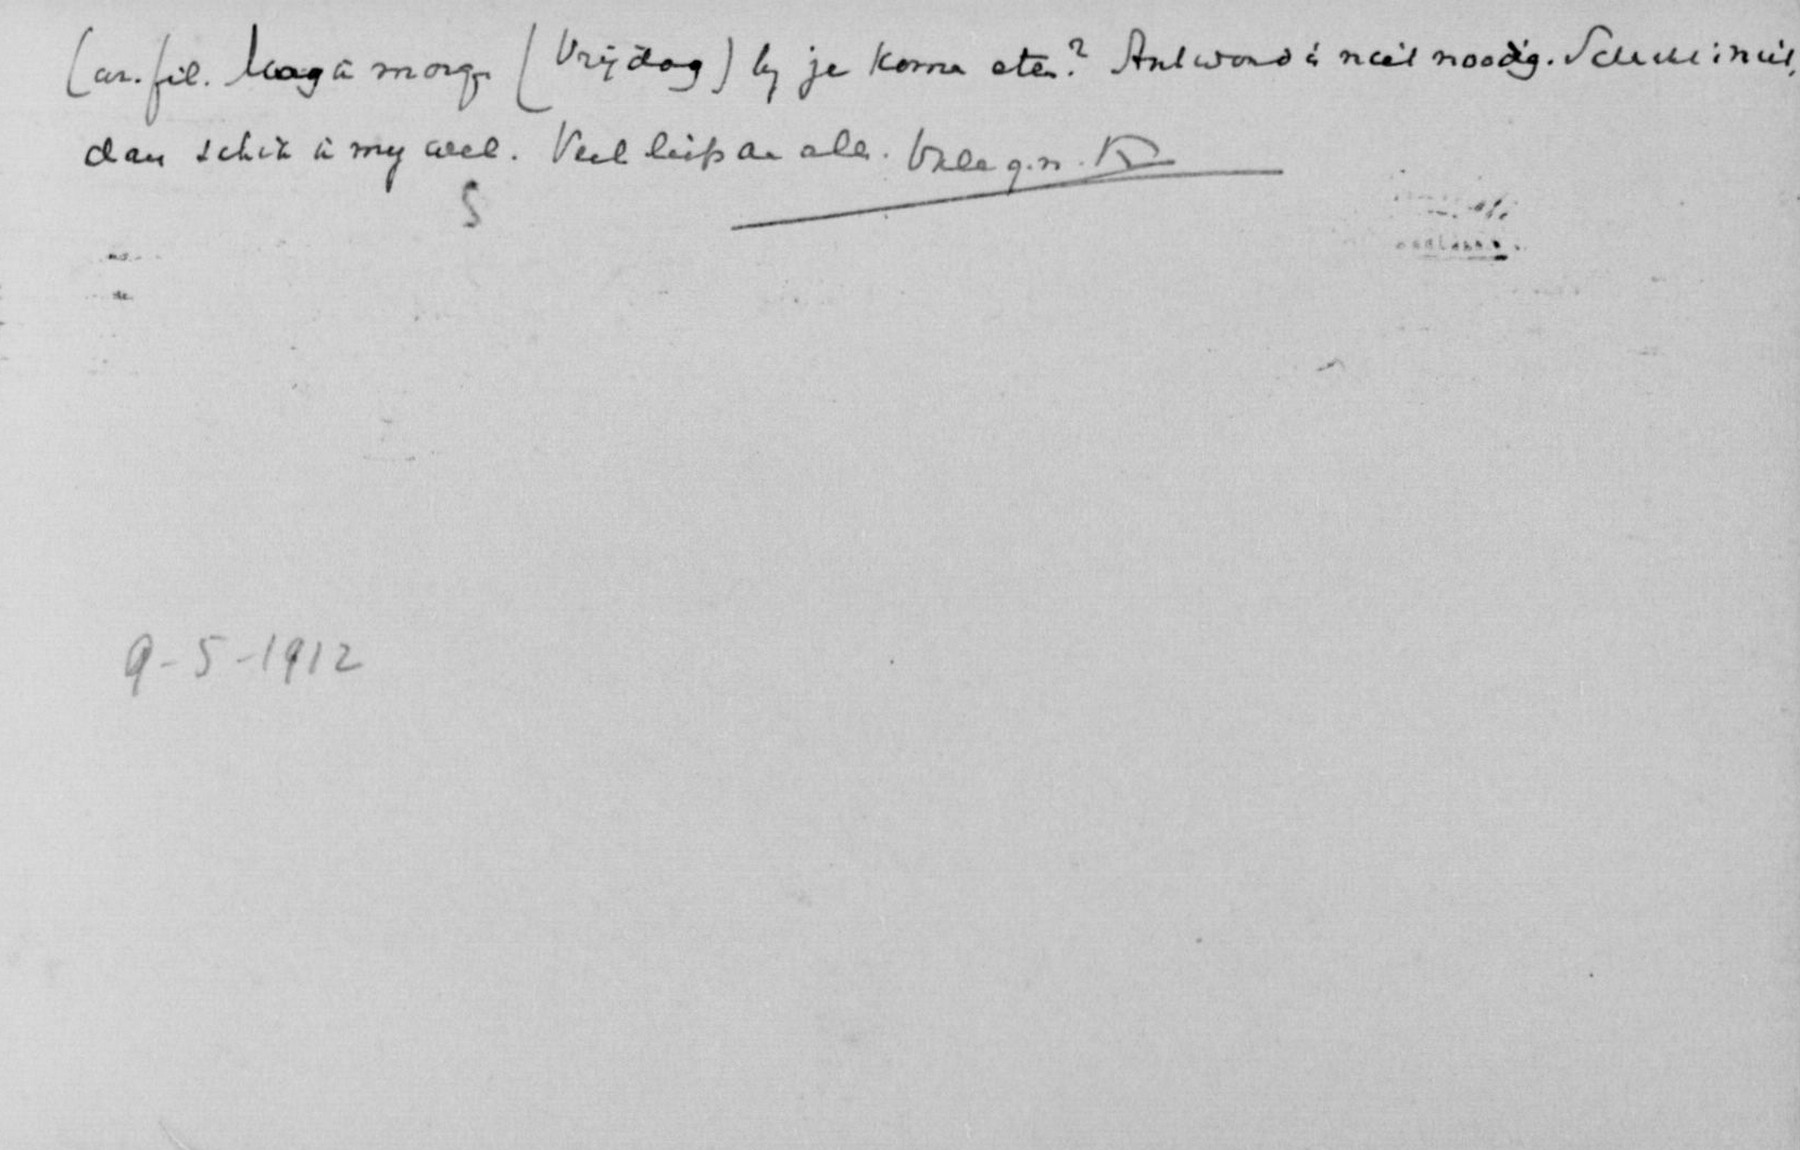 Car. fil. Mag ik morgen (Vrijdag) bij je komen eten? Antwoord is niet noodig. Schikt 't niet,
dan schik ik mij wel. Veel liefs aan allen. Vale q.n. K
S
9-5-1912